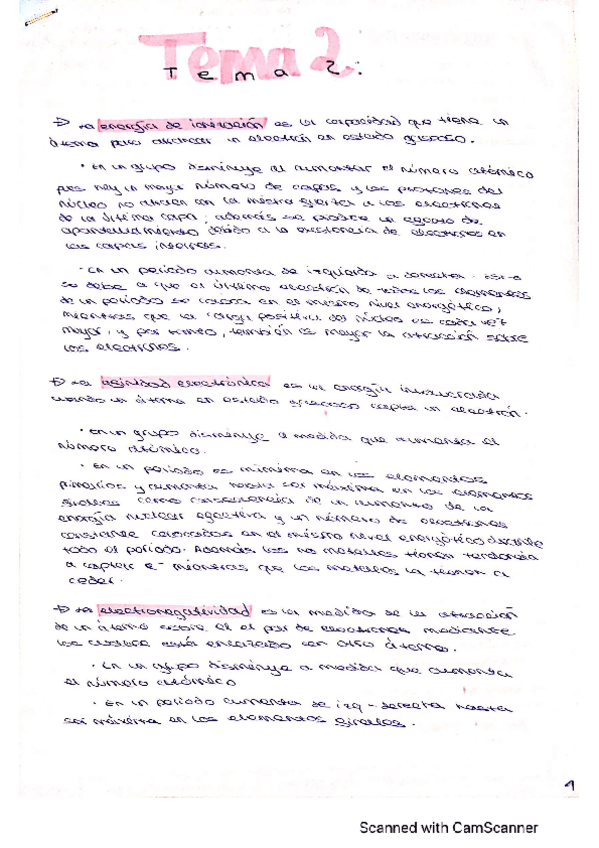 Tema 2:
→ La energía de ionización es la capacidad que tiene un
átomo para arrancar un electrón en estado gaseoso.
· En un grupo disminuye al aumentar el número atómico
pues hay un mayor número de capas y los protones del
núcleo no atraen con la misma fuerza a los electrones
de la última capa; además se produce un efecto de
apantallamiento debido a la existencia de electrones en
las capas internas.
· En un periodo aumenta de izquierda a derecha. Esto
se debe a que el último electrón de todos los elementos
de un periodo se coloca en el mismo nivel energético,
mientras que la carga positiva del núcleo es cada vez
mayor, y por tanto, también es mayor la atracción sobre
los electrones.
→ La afinidad electrónica es la energía involucrada
cuando un átomo en estado gaseoso capta un electrón.
· En un grupo disminuye a medida que aumenta el
número atómico.
· En un periodo es mínima en los elementos
primeros y aumenta hasta ser máxima en los elementos
finales como consecuencia de un aumento de la
energía nuclear efectiva y un número de electrones
constante colocados en el mismo nivel energético durante
todo el periodo. Además los no metales tienen tendencia
a captar e- mientras que los metales la tienen a
ceder.
→ La electronegatividad es la medida de la atracción
de un átomo sobre el par de electrones mediante
los cuales está enlazado con otro átomo.
· En un grupo disminuye a medida que aumenta
el número atómico
· En un periodo aumenta de izq - derecha hasta
ser máxima en los elementos finales.
1
Scanned with CamScanner